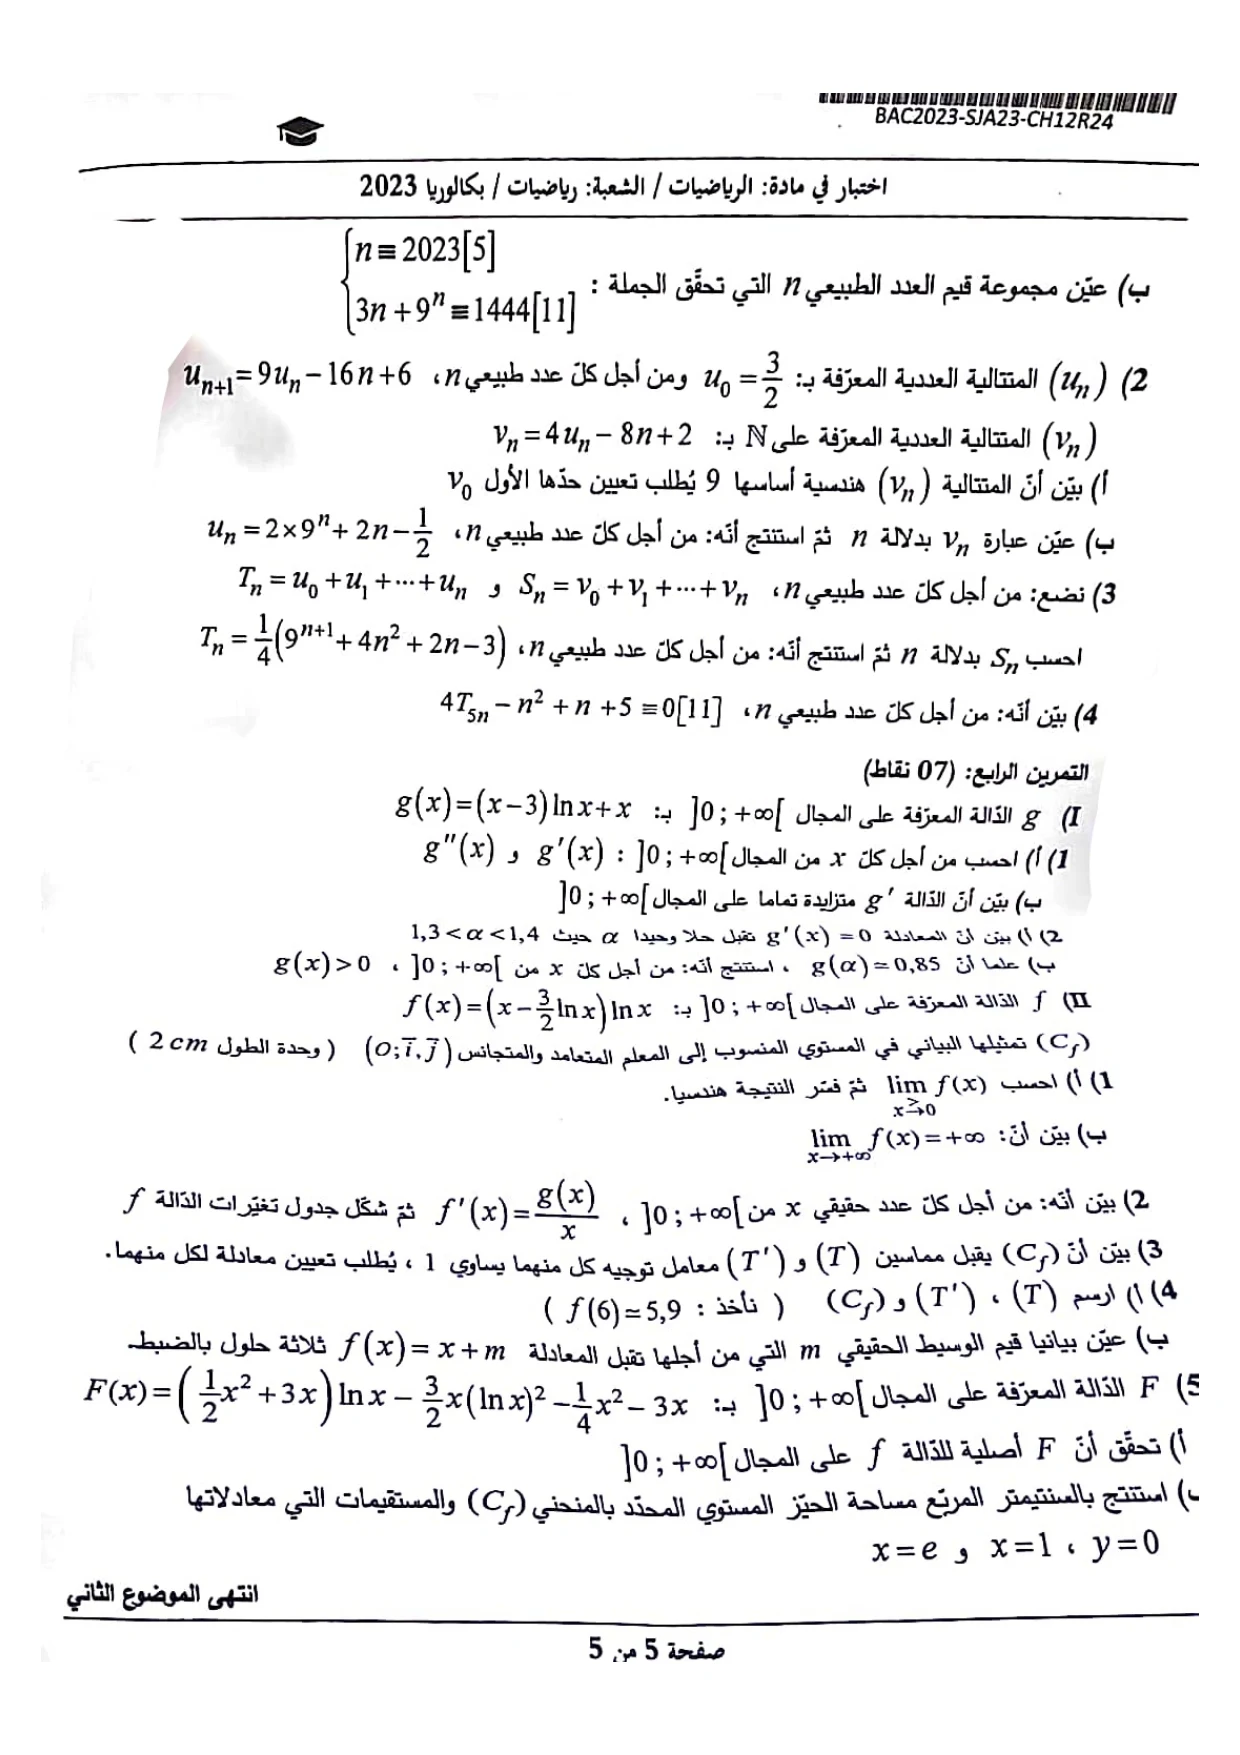 BAC2023-SJA23-CH12R24
اختبار في مادة: الرياضيات / الشعبة: رياضيات / بكالوريا 2023
ب) عيّن مجموعة قيم العدد الطبيعي n التي تحقَّق الجملة : { n ≡ 2023[5]
3n + 9^n ≡ 1444[11]
2) (u_n) المتتالية العددية المعرّفة بـ: u_0 = 3/2 ومن أجل كلّ عدد طبيعي n، u_{n+1} = 9u_n − 16n + 6
(v_n) المتتالية العددية المعرّفة على ℕ بـ: v_n = 4u_n − 8n + 2
أ) بيّن أنّ المتتالية (v_n) هندسية أساسها 9 يُطلب تعيين حدّها الأول v_0
ب) عيّن عبارة v_n بدلالة n ثمّ استنتج أنّه: من أجل كلّ عدد طبيعي n، u_n = 2×9^n + 2n − 1/2
3) نضع: من أجل كلّ عدد طبيعي n، S_n = v_0 + v_1 + ··· + v_n و T_n = u_0 + u_1 + ··· + u_n
احسب S_n بدلالة n ثمّ استنتج أنّه: من أجل كلّ عدد طبيعي n، T_n = 1/4(9^{n+1} + 4n² + 2n − 3)
4) بيّن أنّه: من أجل كلّ عدد طبيعي n، 4T_{5n} − n² + n + 5 ≡ 0[11]
التمرين الرابع: (07 نقاط)
I) g الدّالة المعرّفة على المجال ]0 ; +∞[ بـ: g(x) = (x−3)ln x + x
1) أ) احسب من أجل كلّ x من المجال ]0 ; +∞[ : g′(x) و g″(x)
ب) بيّن أنّ الدّالة g′ متزايدة تماما على المجال ]0 ; +∞[
2) أ) بيّن أنّ المعادلة g′(x) = 0 تقبل حلا وحيدا α حيث 1,3 < α < 1,4
ب) علما أنّ g(α) ≃ 0,85 ، استنتج أنّه: من أجل كلّ x من ]0 ; +∞[ ، g(x) > 0
II) f الدّالة المعرّفة على المجال ]0 ; +∞[ بـ: f(x) = (x − 3/2 ln x) ln x
(C_f) تمثيلها البياني في المستوي المنسوب إلى المعلم المتعامد والمتجانس (O; i⃗, j⃗) ( وحدة الطول 2cm )
1) أ) احسب lim_{x→0, >} f(x) ثمّ فسّر النتيجة هندسيا.
ب) بيّن أنّ: lim_{x→+∞} f(x) = +∞
2) بيّن أنّه: من أجل كلّ عدد حقيقي x من ]0 ; +∞[ ، f′(x) = g(x)/x ثمّ شكّل جدول تغيّرات الدّالة f
3) بيّن أنّ (C_f) يقبل مماسين (T) و (T′) معامل توجيه كل منهما يساوي 1 ، يُطلب تعيين معادلة لكل منهما.
4) أ) ارسم (T) ، (T′) و (C_f) ( نأخذ : f(6) ≃ 5,9 )
ب) عيّن بيانيا قيم الوسيط الحقيقي m التي من أجلها تقبل المعادلة f(x) = x + m ثلاثة حلول بالضبط.
5) F الدّالة المعرّفة على المجال ]0 ; +∞[ بـ: F(x) = (1/2 x² + 3x) ln x − 3/2 x(ln x)² − 1/4 x² − 3x
أ) تحقّق أنّ F أصلية للدّالة f على المجال ]0 ; +∞[
ب) استنتج بالسنتيمتر المربّع مساحة الحيّز المستوي المحدّد بالمنحني (C_f) والمستقيمات التي معادلاتها
y = 0 ، x = 1 و x = e
انتهى الموضوع الثاني
صفحة 5 من 5